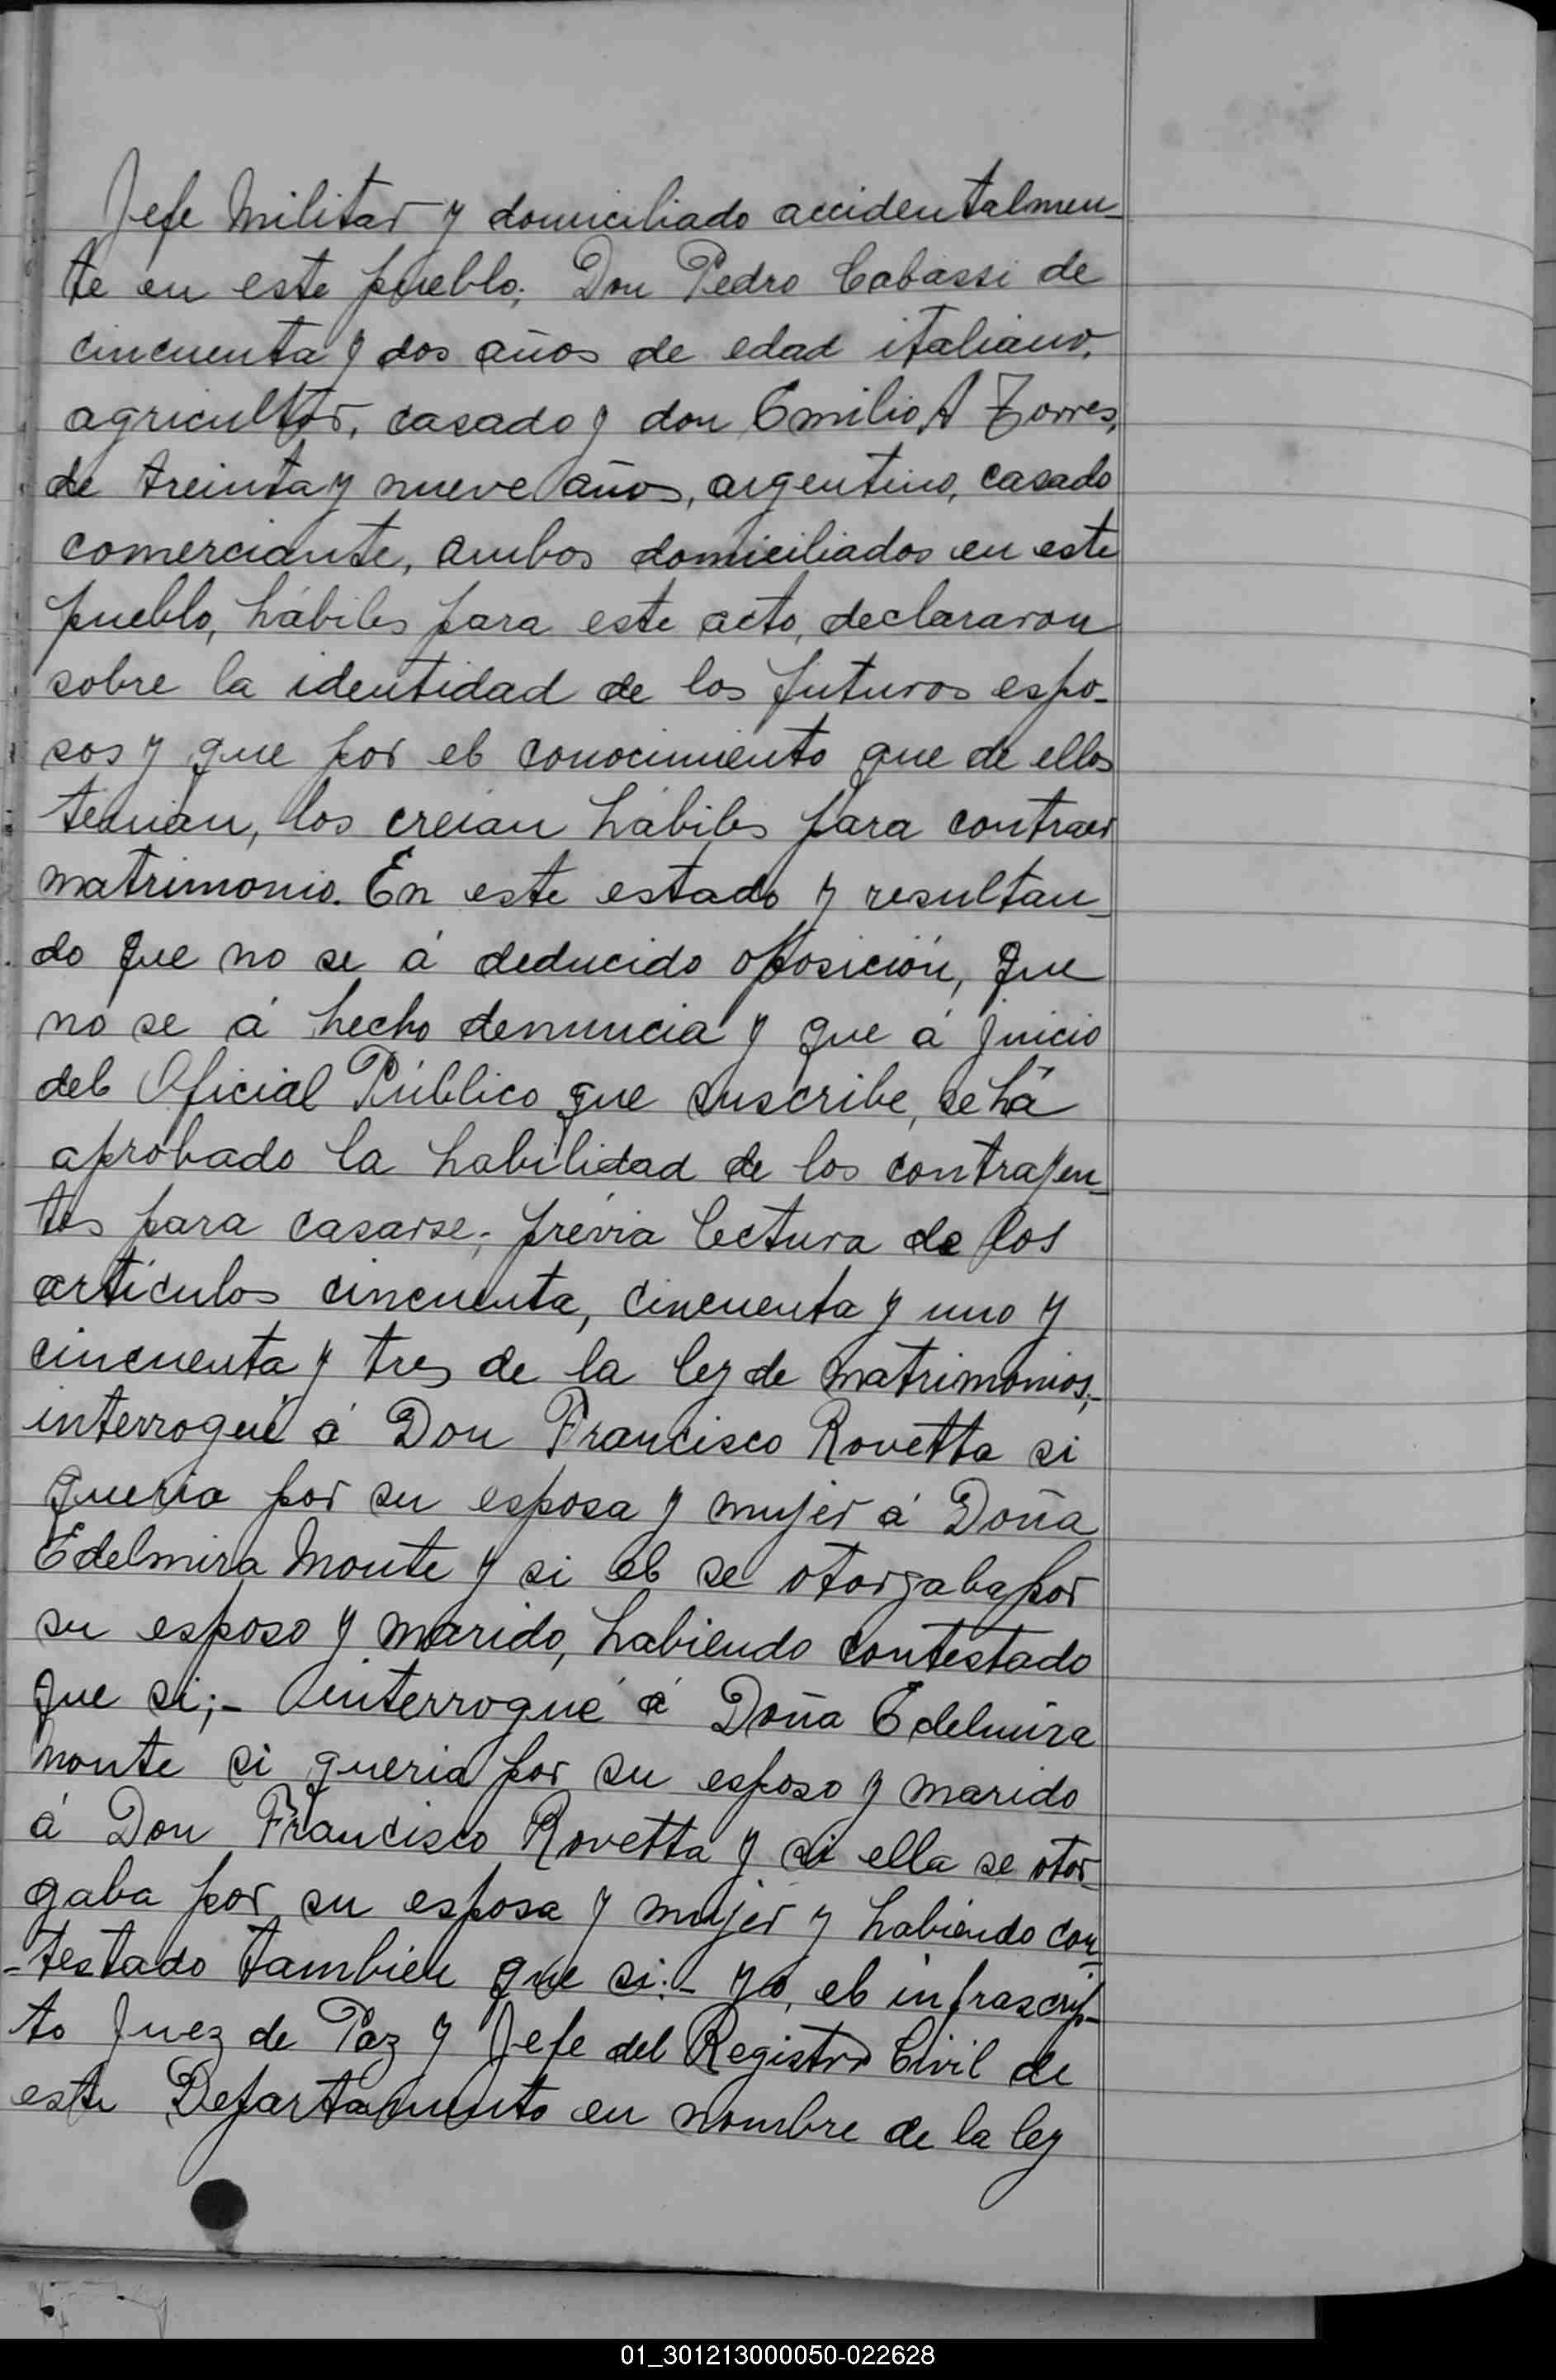 Jefe Militar y domiciliado accidentalmen-
te en este pueblo; Don Pedro Cabassi de
cincuenta y dos años de edad italiano,
agricultor, casado y don Emilio A Torres,
de treinta y nueve años, argentino, casado
comerciante, ambos domiciliados en este
pueblo, hábiles para este acto, declararon
sobre la identidad de los futuros espo-
sos y que por el conocimiento que de ellos
tenian, los creian hábiles para contraer
matrimonio. En este estado y resultan-
do que no se á deducido oposición, que
no se á hecho denuncia y que á juicio
del Oficial Público que suscribe, se há
aprobado la habilidad de los contrayen-
tes para casarse; prévia lectura de los
artículos cincuenta, cincuenta y uno y
cincuenta y tres de la ley de matrimonios;-
interrogué á Don Francisco Rovetta si
queria por su esposa y mujer á Doña
Edelmira Monte y si el se otorgaba por
su esposo y marido, habiendo contestado
que si;- interrogué á Doña Edelmira
Monte si queria por su esposo y marido
á Don Francisco Rovetta y si ella se otor-
gaba por su esposa y mujer y habiendo con-
-testado tambien que si:- yo, el infrascrip-
to Juez de Paz y Jefe del Registro Civil de
este Departamento en nombre de la ley
01_301213000050-022628